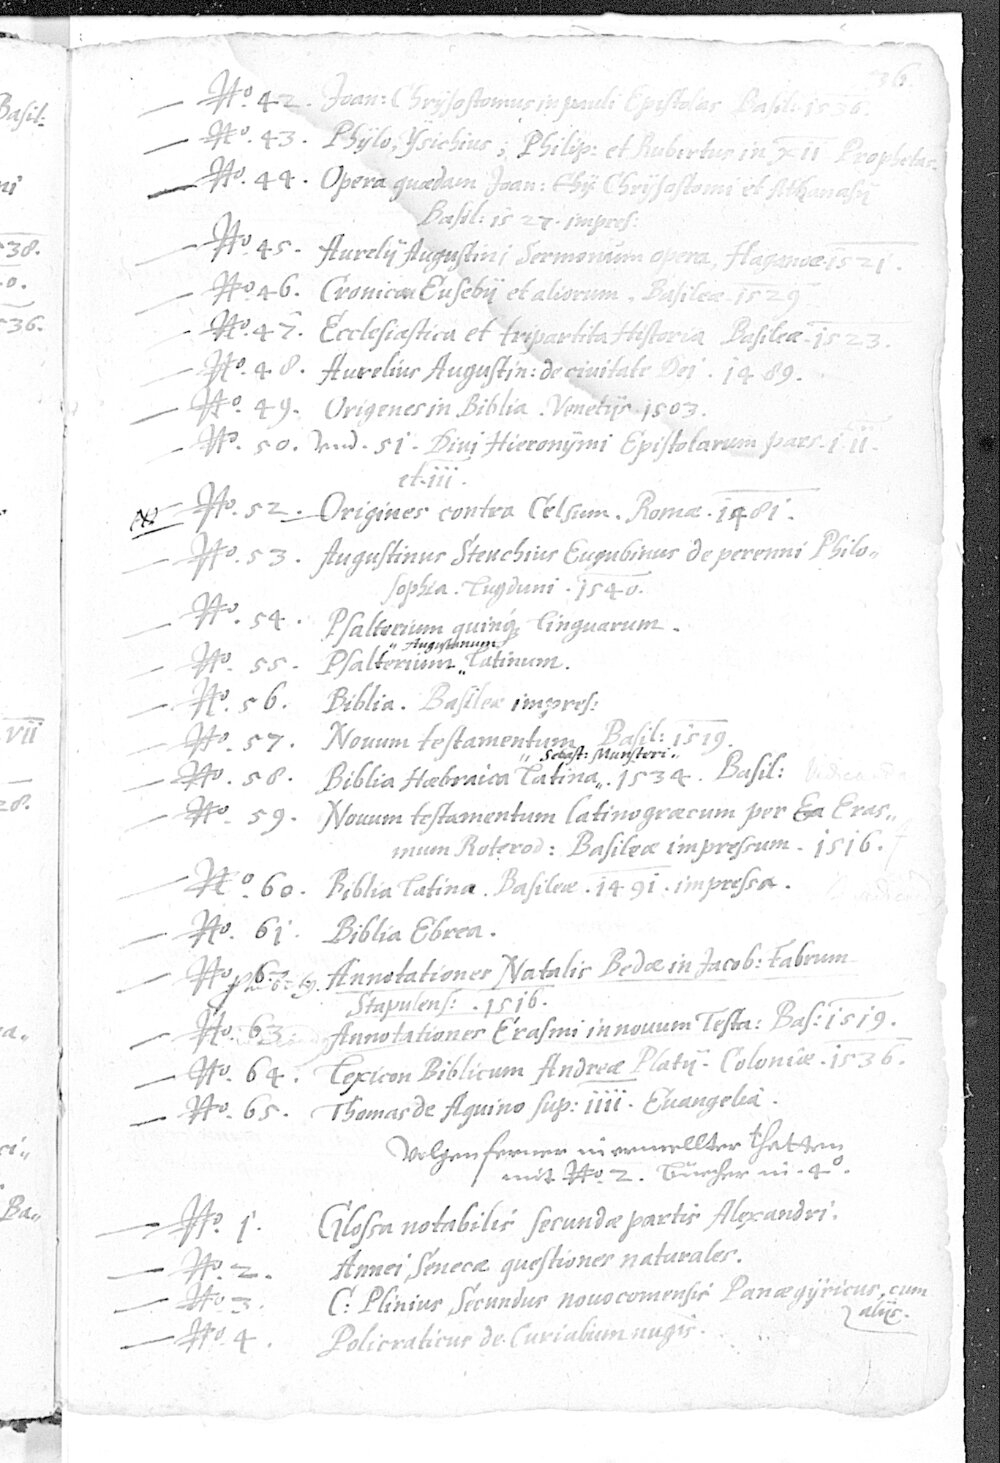 36
No. 42. Joan: Chrÿsostomus in pauli Epistolas Basil: 1536.
No. 43. Phÿlo, Ysichius; Philip: et Rubertus in XII Prophetas.
No. 44. Opera quædam Joan: Chrÿsostomi et Athanasÿ
Basil: 1527. impres:
No. 45. Aurelÿ Augustini Sermonum opera, Haganoæ 1521.
No. 46. Cronica Eusebÿ et aliorum. Basileæ. 1529
No. 47. Ecclesiastica et tripartita Historia Basileæ. 1523.
No. 48. Aurelius Augustin: de civitate Dei. 1489.
No. 49. Origenes in Biblia. Venetÿs. 1503.
No. 50. vnd. 51. Divi Hieronÿmi Epistolarum pars. i. ii.
et. iii.
No. 52. Origines contra Celsum. Romæ. 1481.
No. 53. Augustinus Steuchius Eugubinus de perenni Philo„
sophia. Lugduni. 1540.
No. 54. Psalterium quinq linguarum.
„ Augustanum
No. 55. Psalterium „ Latinum.
No. 56. Biblia. Basileæ impres:
No. 57. Nouum testamentum Basil: 1519.
„ Sebast: Munsteri „
No. 58. Biblia Hæbraica Latina „. 1534. Basil:
No. 59. Nouum testamentum latinogræcum per Ea Eras„
mum Roterod: Basileæ impressum. 1516.
No. 60. Biblia Latina. Basileæ. 1491. impressa.
No. 61. Biblia Ebrea.
No. 62. Annotationes Natalis Bedæ in Jacob: Fabrum
Stapulens: . 1516.
No. 63. Annotationes Erasmi in nouum Testa: Bas: 1519.
No. 64. Lexicon Biblicum Andreæ Platÿ. Coloniæ. 1536.
No. 65. Thomas de Aquino sup: iiii. Euangelia.
Volgen ferner in ermellter
mit No. 2. Bücher in. 4o.
No. 1. Glossa notabilis secundæ partis Alexandri.
No. 2. Annei Senecæ questiones naturales.
No. 3. C: Plinius Secundus nouocomensis Panægÿricus, cum
alÿs.
No. 4. Policraticus de Curialium nugis.